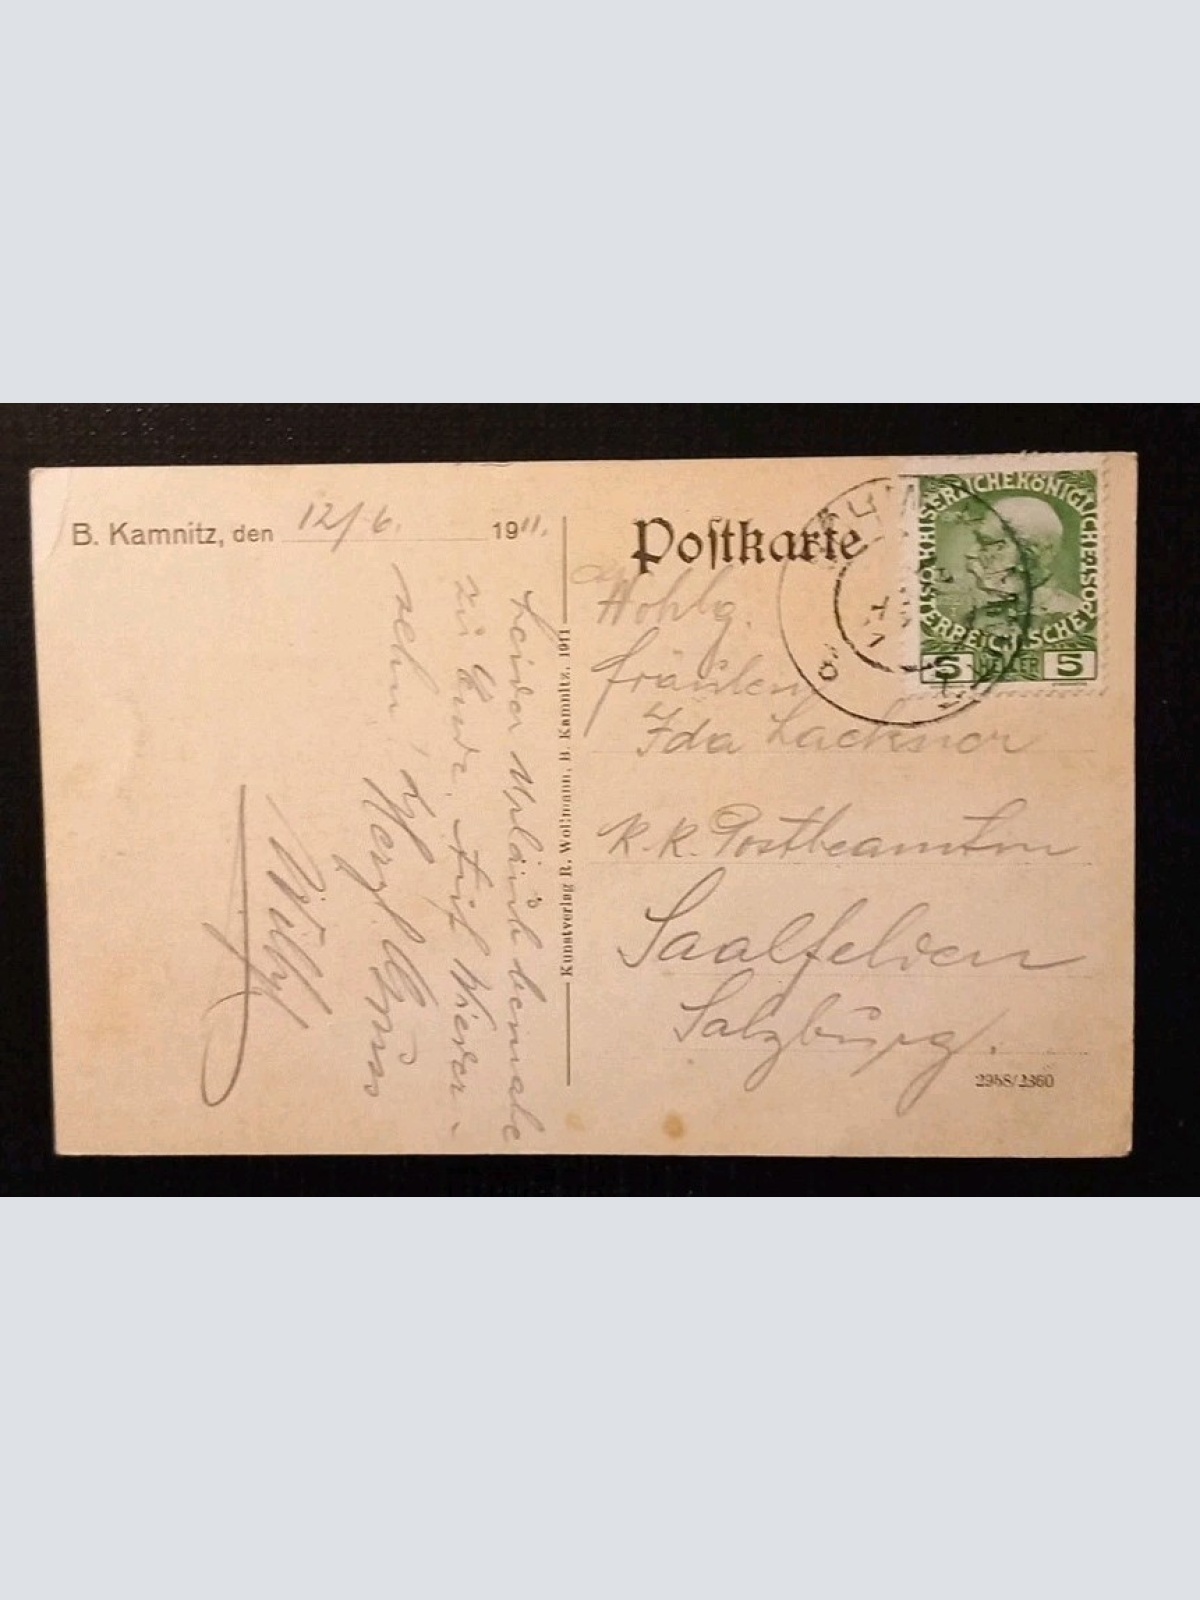 B. Kamnitz, den 12/6. 1911.
Postkarte
Wohlg.
Fräulein
Ida Lackner
k. k. Postbeamtin
Saalfelden
Salzburg.
2958/2360
Kunstverlag R. Wollmann, B. Kamnitz. 1911
Leider Urlaub bemale
zu Ende. Auf Wieder-
sehn! Herzl. Gruss
Willy
ÖSTERREICHISCHE POST KAISERLICHE KÖNIGLICHE
5 HELLER 5